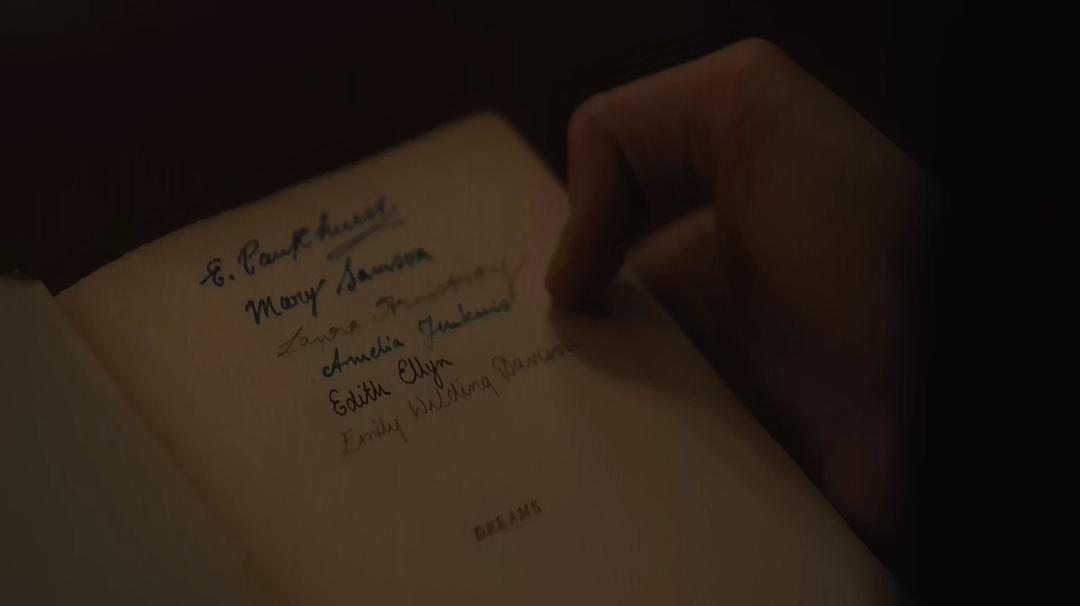 E. Pankhurst
Mary Samson
Laura Armstrong
Amelia Jenkins
Edith Ellyn
Emily Wilding Davison
DREAMS